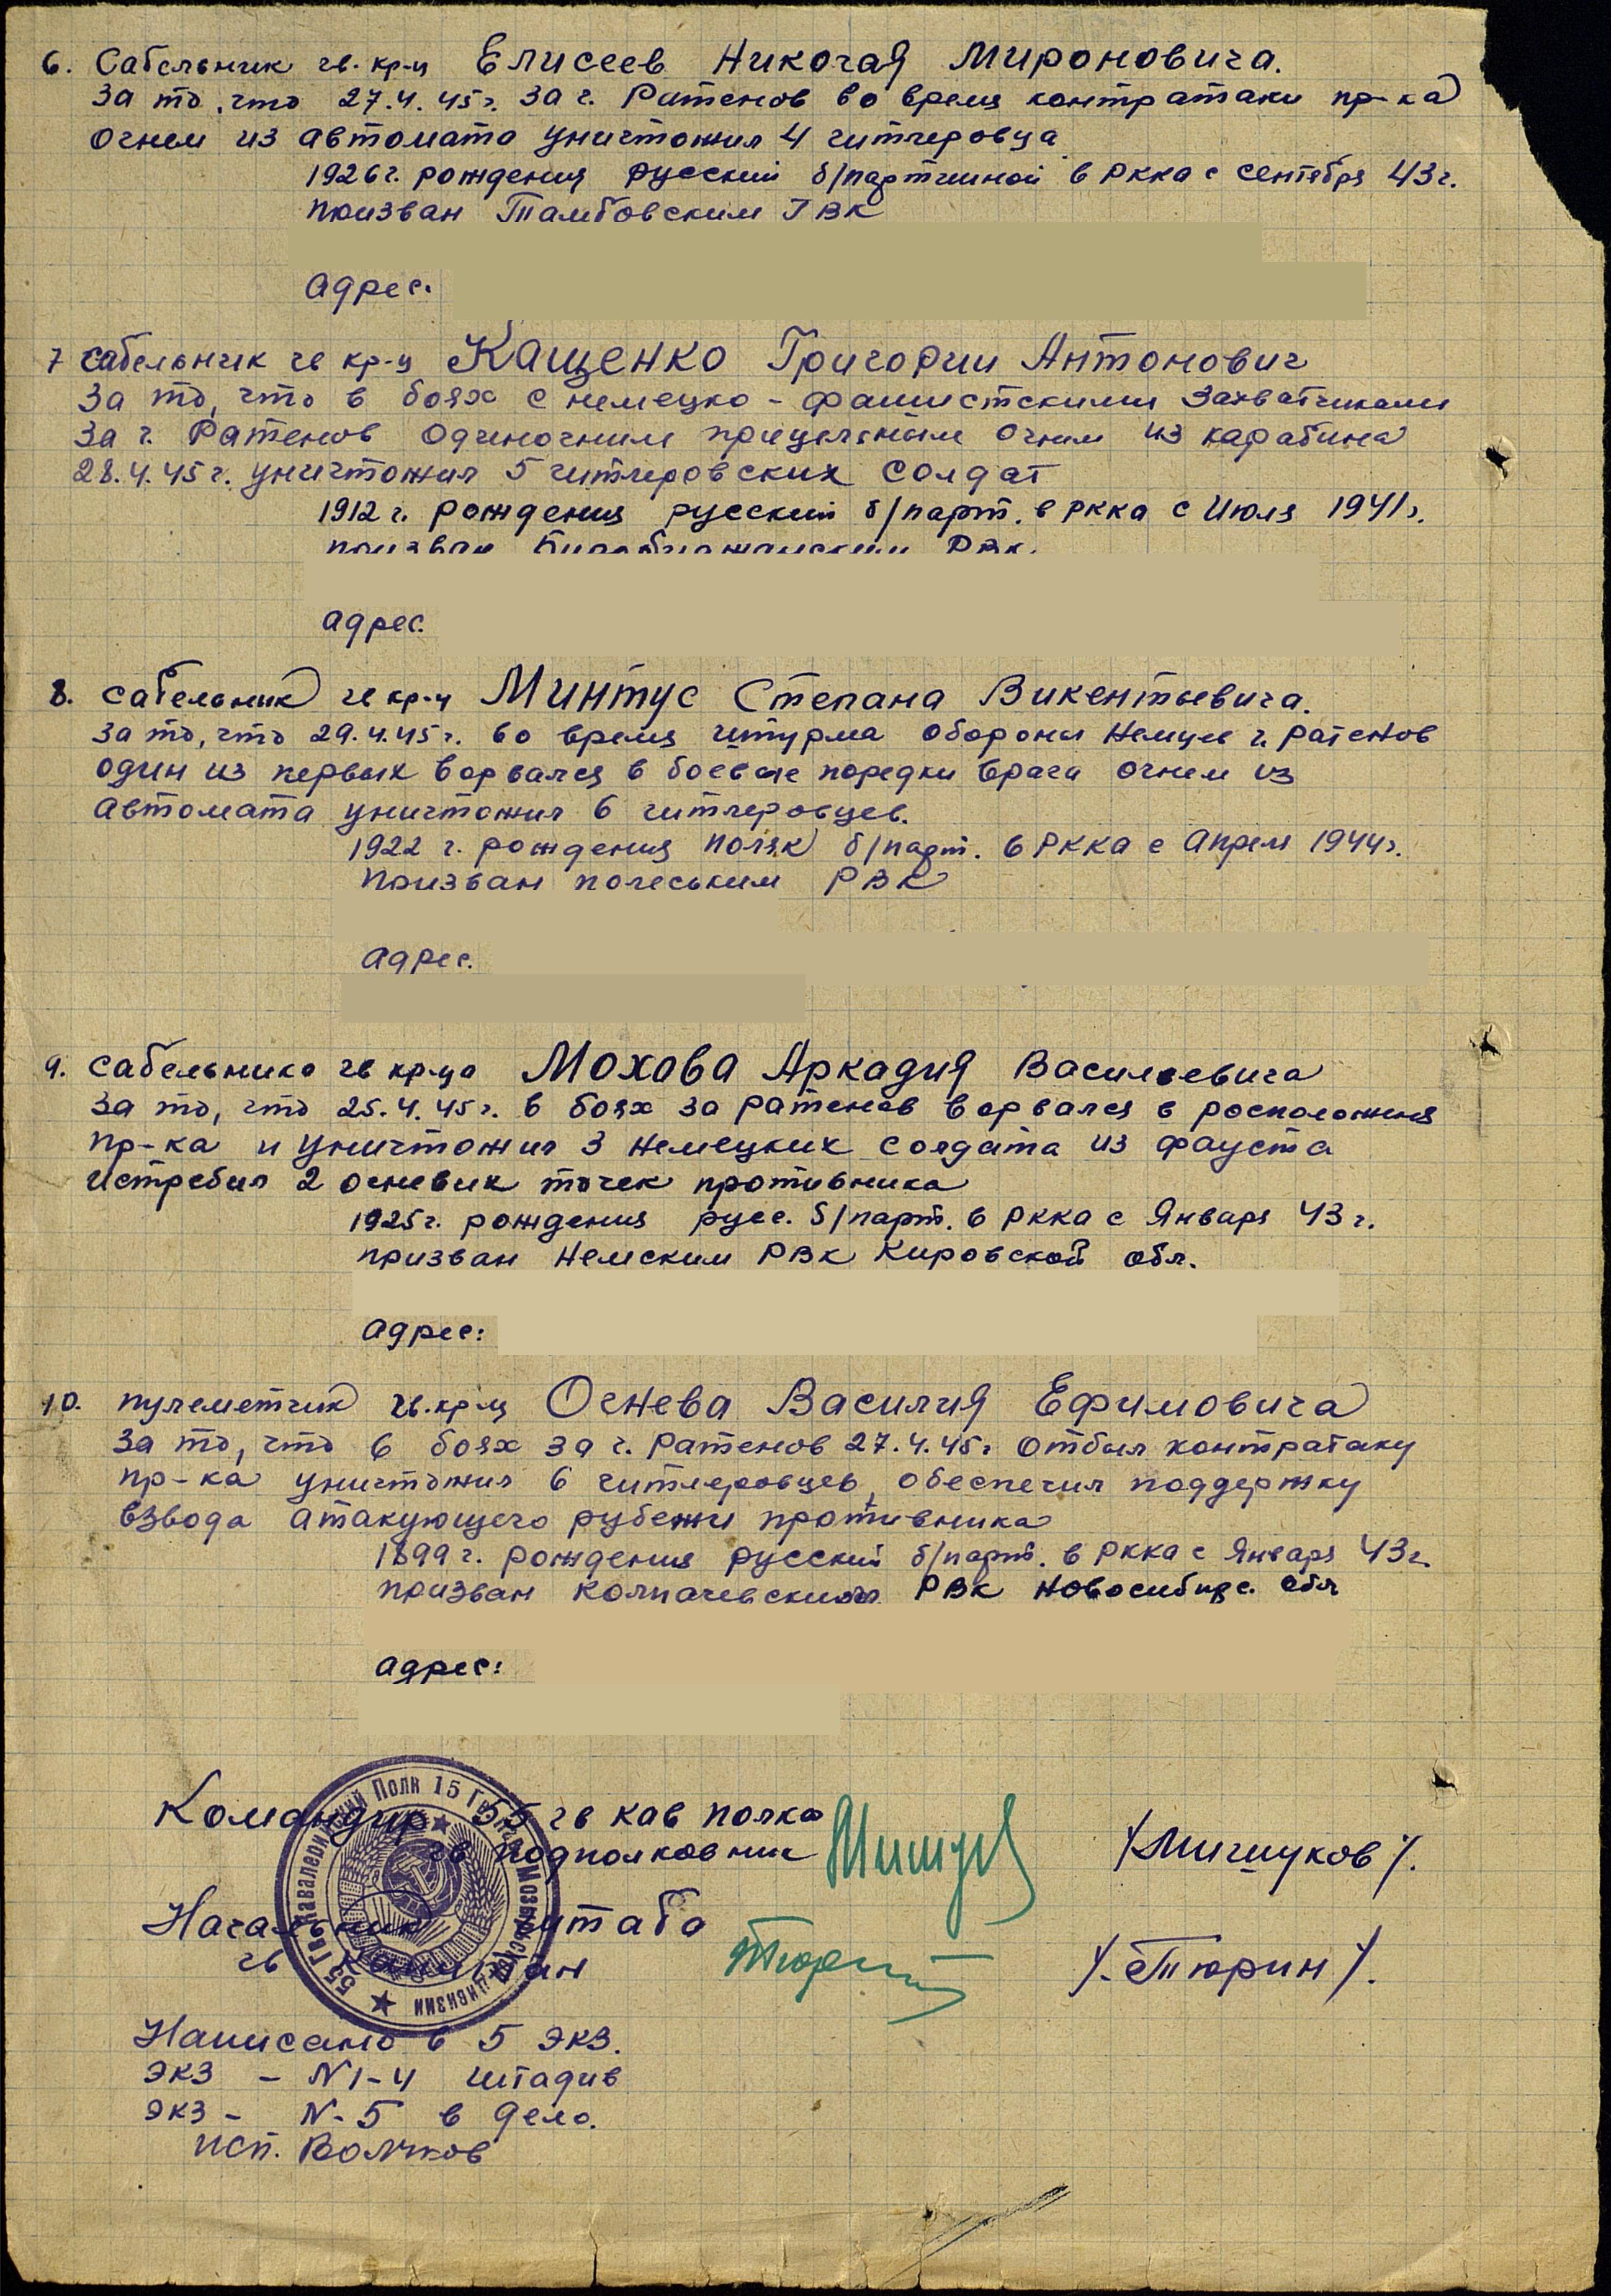 6. Сабельник гв. кр-ц Елисеев Николая Мироновича.
За то, что 27.4.45г. за г. Ратенов во время контратаки пр-ка
огнем из автомата уничтожил 4 гитлеровца
1926г. рождения русский б/партийной в РККА с сентября 43г.
призван Тамбовским ГВК
Адрес.
7 сабельник гв кр-ц Кащенко Григории Антонович
За то, что в боях с немецко-фашистскими захватчиками
за г. Ратенов одиночним прицельным огнем из карабина
28.4.45г. уничтожил 5 гитлеровских солдат
1912г. рождения русский б/парт. в РККА с Июля 1941г.
призван Биробиджанским РВК.
Адрес.
8. сабельник гв кр-ц Минтус Степана Викентьевича.
За то, что 29.4.45г. во время штурма обороны Немцев г. Ратенов
один из первых ворвался в боевые порядки врага огнем из
автомата уничтожил 6 гитлеровцев.
1922 г. рождения поляк б/парт. в РККА с Апреля 1944г.
Призван полеським РВК
Адрес.
9. сабельника гв кр-ца Мохова Аркадия Василевича
За то, что 25.4.45г. в боях за Ратенов ворвался в росположения
пр-ка и уничтожил 3 немецких солдата из фауста
истребил 2 огневик точек противника
1925г. рождения русс. б/парт. в РККА с Января 43г.
призван Немским РВК Кировской обл.
Адрес:
10. пулеметчик гв.кр-ц Огнева Василия Ефимовича
За то, что в боях за г. Ратенов 27.4.45г. отбил контратаку
пр-ка уничтожил 6 гитлеровцев, обеспечил поддержку
взвода атакующего рубежи противника
1899г. рождения русский б/парт. в РККА с Января 43г.
призван Колпачевским РВК Новосибирс. обл
Адрес:
Командир 55 гв кав полка
гв подполковник /Мишуков/.
Начальник штаба
гв капитан /.Тюрин/.
55 Гв. Кавалерийский Полк 15 Гвард. Мозырьской дивизии
Написано в 5 экз.
экз - N1-4 штадив
экз - N-5 в дело.
исп. Волчков